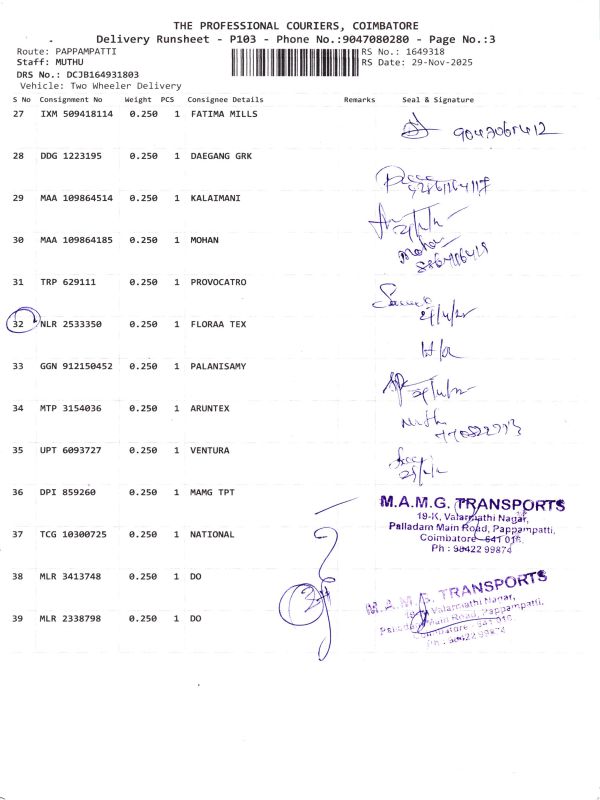 THE PROFESSIONAL COURIERS, COIMBATORE
Delivery Runsheet - P103 - Phone No.:9047080280 - Page No.:3
Route: PAPPAMPATTI RS No.: 1649318
Staff: MUTHU RS Date: 29-Nov-2025
DRS No.: DCJB164931803
Vehicle: Two Wheeler Delivery
S No Consignment No Weight PCS Consignee Details Remarks Seal & Signature
27 IXM 509418114 0.250 1 FATIMA MILLS
28 DDG 1223195 0.250 1 DAEGANG GRK
29 MAA 109864514 0.250 1 KALAIMANI
30 MAA 109864185 0.250 1 MOHAN
Mohan
31 TRP 629111 0.250 1 PROVOCATRO
32 NLR 2533350 0.250 1 FLORAA TEX
33 GGN 912150452 0.250 1 PALANISAMY
34 MTP 3154036 0.250 1 ARUNTEX
35 UPT 6093727 0.250 1 VENTURA
36 DPI 859260 0.250 1 MAMG TPT
M.A.M.G. TRANSPORTS
19-K, Valarmathi Nagar,
Palladam Main Road, Pappampatti,
Coimbatore - 641 016.
Ph : 98422 99874
37 TCG 10300725 0.250 1 NATIONAL
38 MLR 3413748 0.250 1 DO
M.A.M.G. TRANSPORTS
19-K, Valarmathi Nagar,
Palladam Main Road, Pappampatti,
Coimbatore - 641 016.
Ph : 98422 99874
39 MLR 2338798 0.250 1 DO